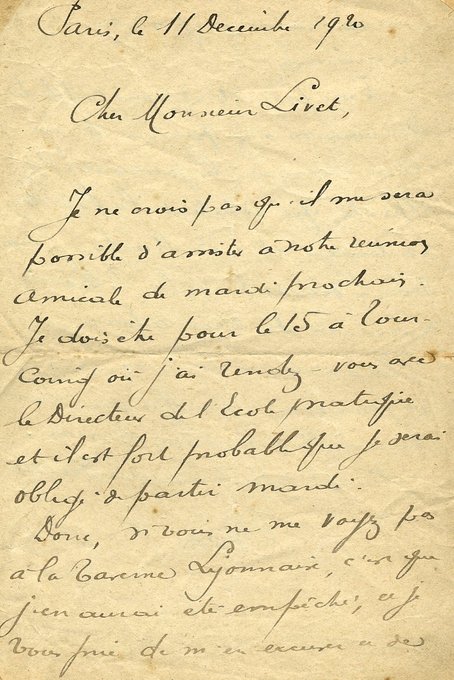 Paris, le 11 Decembre 1920
Cher Monsieur Livet,
Je ne crois pas qu'il me sera
possible d'assister à notre réunion
amicale de mardi prochain.
Je dois être pour le 15 à Tour-
coing où j'ai rendez-vous avec
le Directeur de l'Ecole pratique
et il est fort probable que je serai
obligé de partir mardi.
Donc, si vous ne me voyez pas
à la Taverne Lyonnaise, c'est que
j'en aurai été empêché, et je
vous prie de m'en excuser et de